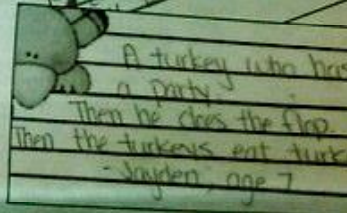 A turkey who has
a party.
Then he does the flap.
Then the turkeys eat turk
- Jayden, age 7